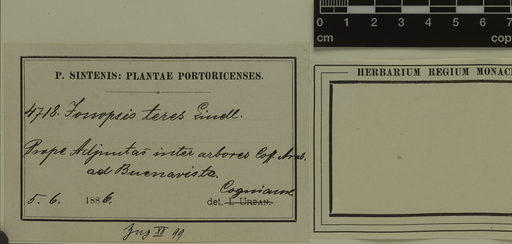 0 1 2 3 4 5 6 7
cm cop
P. SINTENIS: PLANTAE PORTORICENSES.
HERBARIUM REGIUM MONAC
4718. Jonopsis teres Lindl.
Prope Adjuntas inter arbores Coff. Arab.
ad Buenavista.
Cogniaux
5. 6. 1886. det. I. Urban.
99